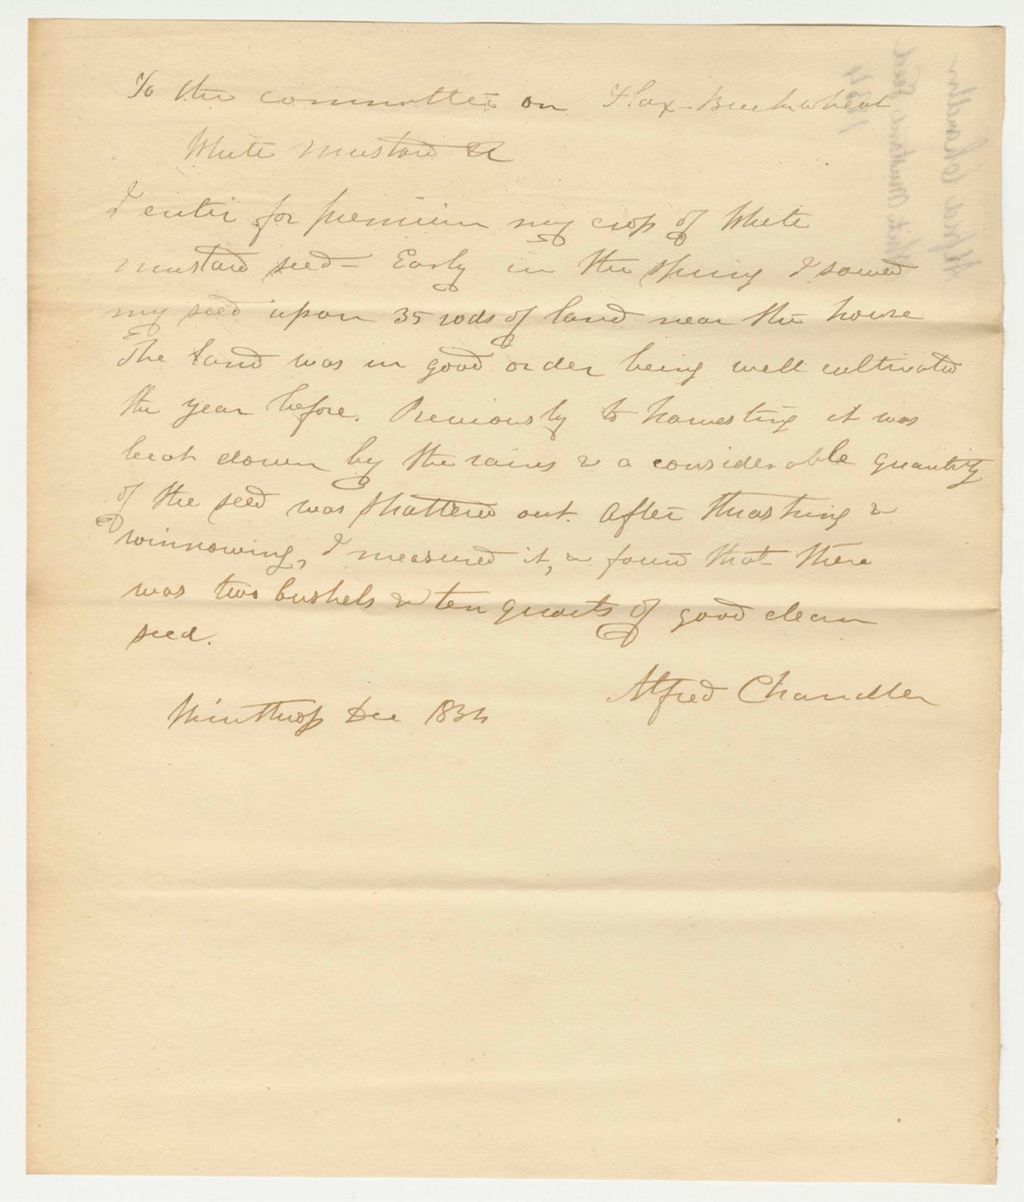 To the committee on Flax-Buckwheat
White mustard &c
I enter for premium my crop of White
mustard seed - Early in the spring I sowed
my seed upon 35 rods of land near the house
The land was in good order being well cultivated
the year before. Previously to harvesting it was
beat down by the rains & a considerable quantity
of the seed was shattered out. After thrashing &
winnowing, I measured it, & found that there
was two bushels & ten quarts of good clean
seed.
Alfred Chandler
Winthrop Dec 1834
Alfred Chandler
White Mustard Seed
1834